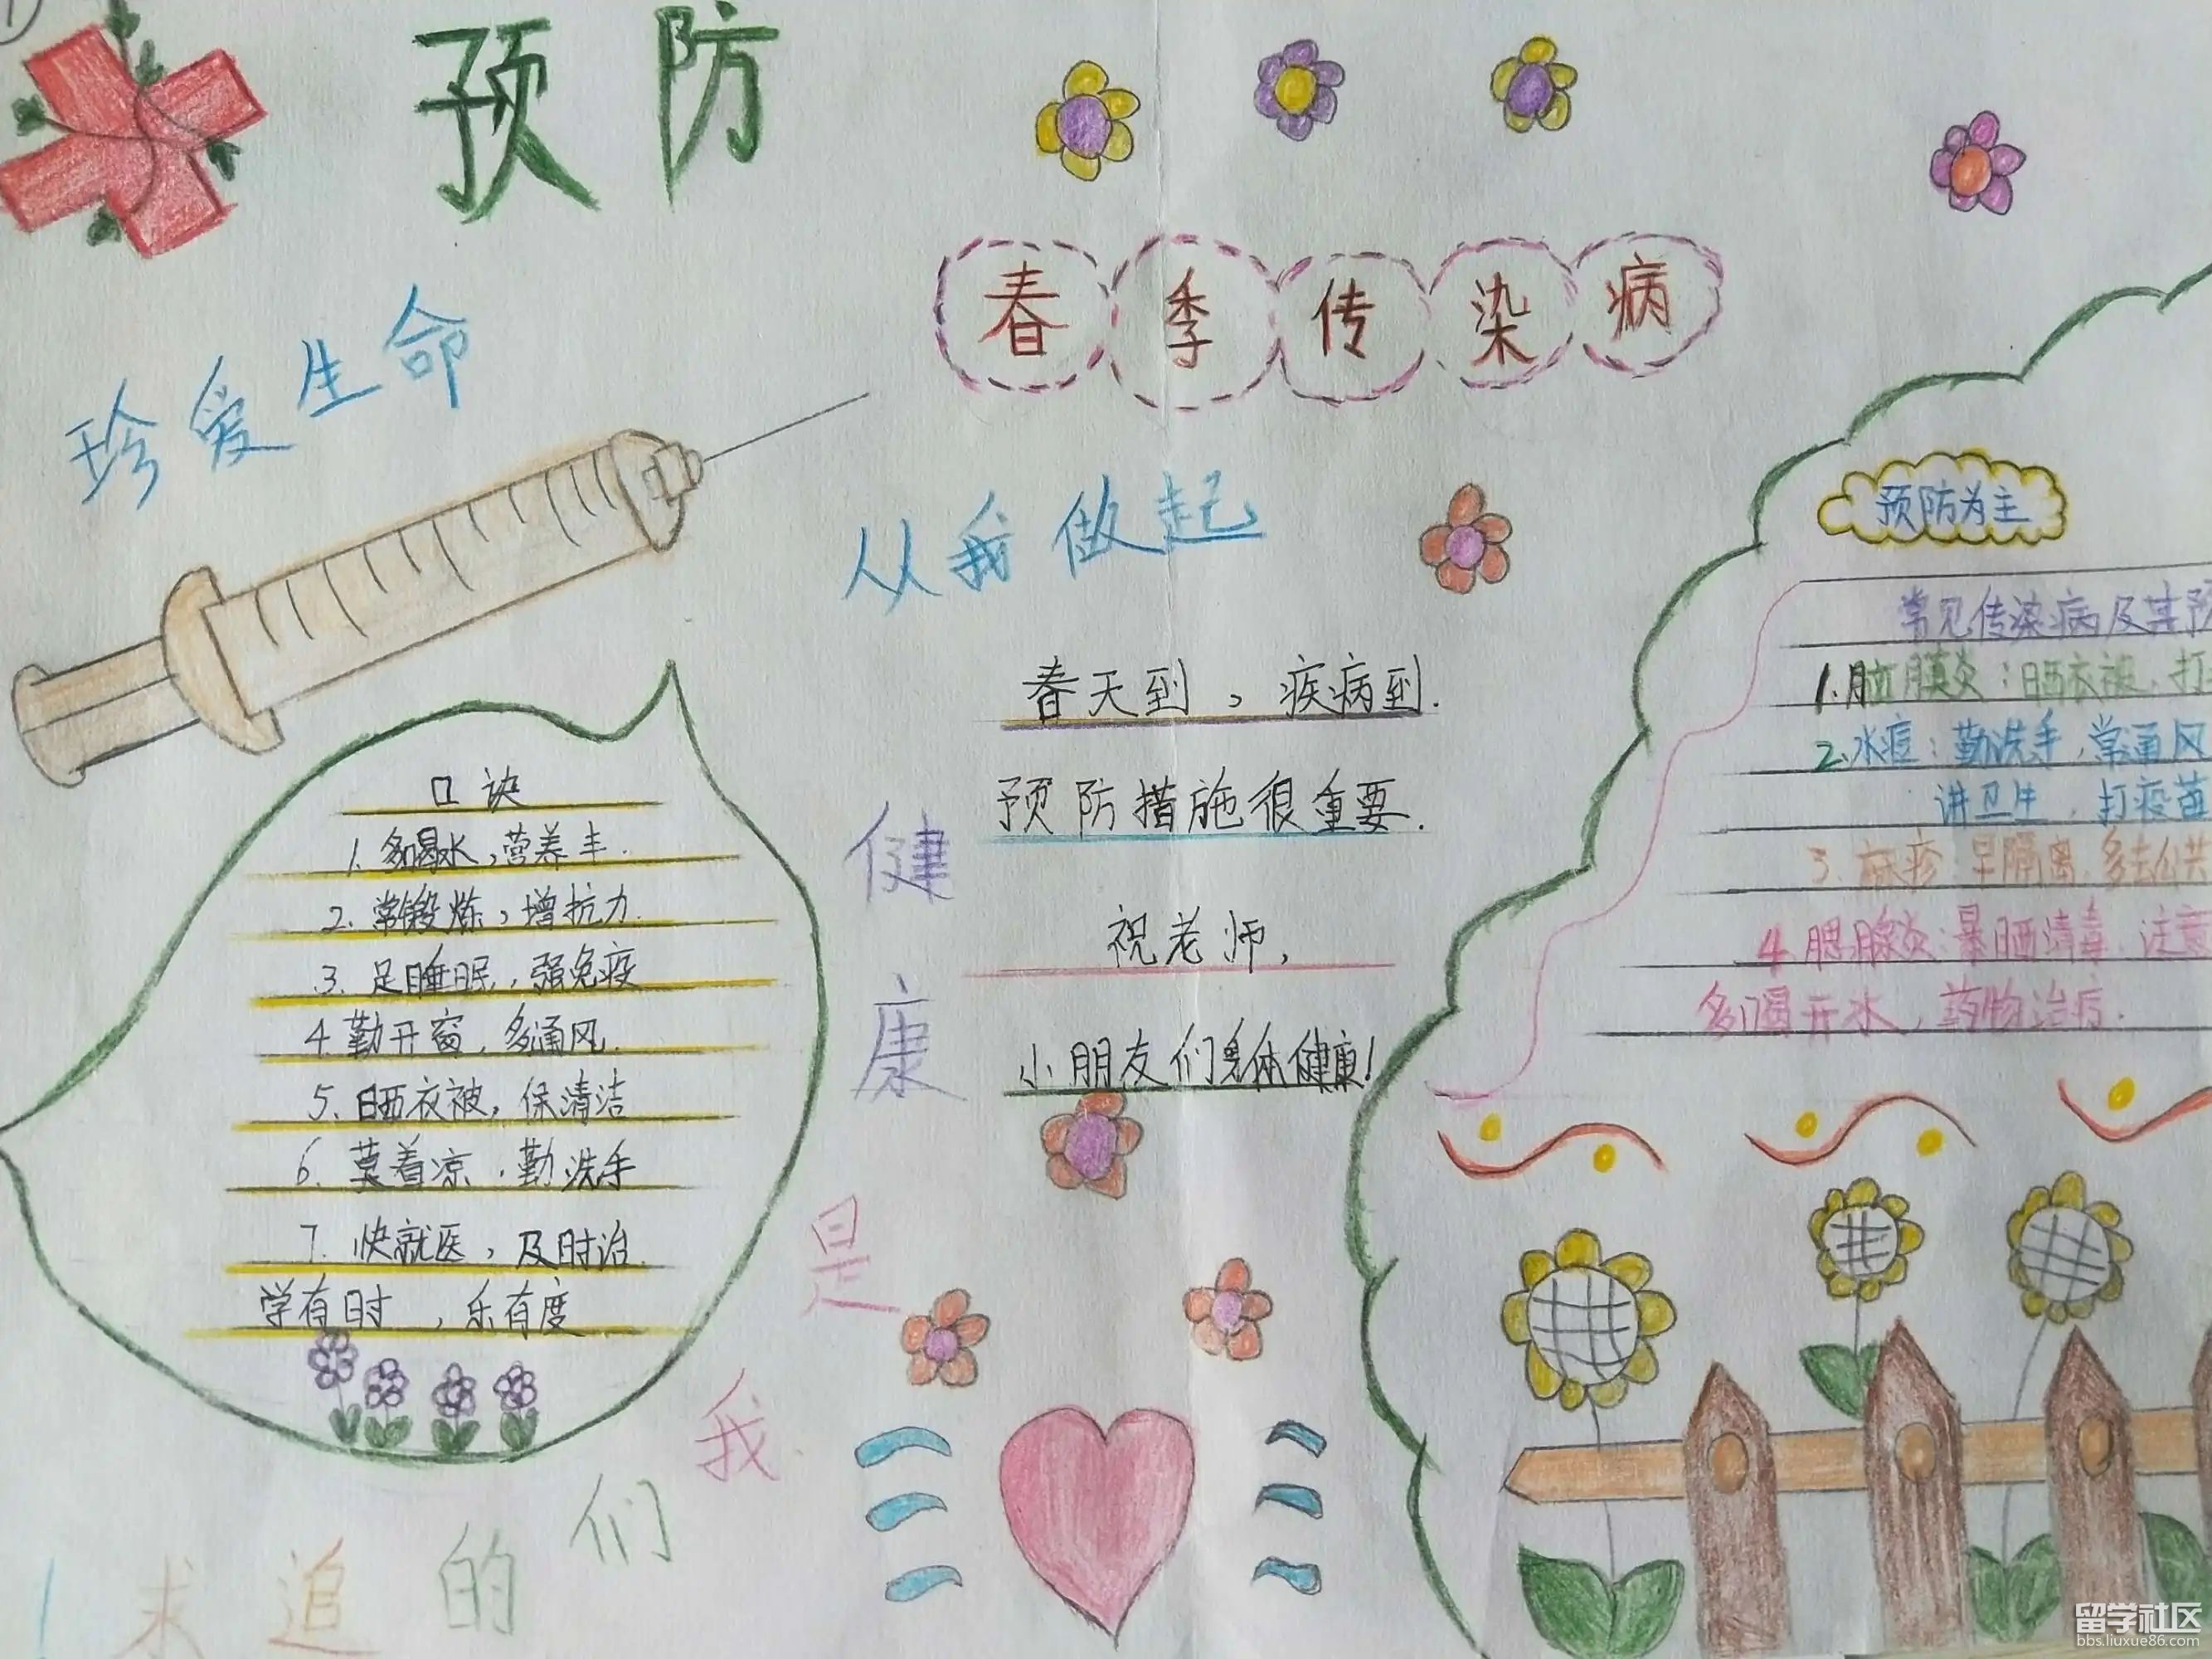 预防
春季传染病
珍爱生命
从我做起
口诀
1、多喝水,营养丰.
2、常锻炼,增抗力.
3、足睡眠,强免疫
4、勤开窗,多通风.
5、晒衣被,保清洁
6、莫着凉,勤洗手
7、快就医,及时治.
学有时,乐有度
春天到,疾病到.
预防措施很重要.
祝老师,
小朋友们身体健康!
健康是我们的追求!
预防为主
常见传染病及其预
1.脑膜炎:晒衣被,打
2.水痘:勤洗手,常通风
讲卫生,打疫苗
3.麻疹:早隔离,多去公共
4.腮腺炎:暴晒清毒,注意
多喝开水,药物治疗.
留学社区
bbs.liuxue86.com